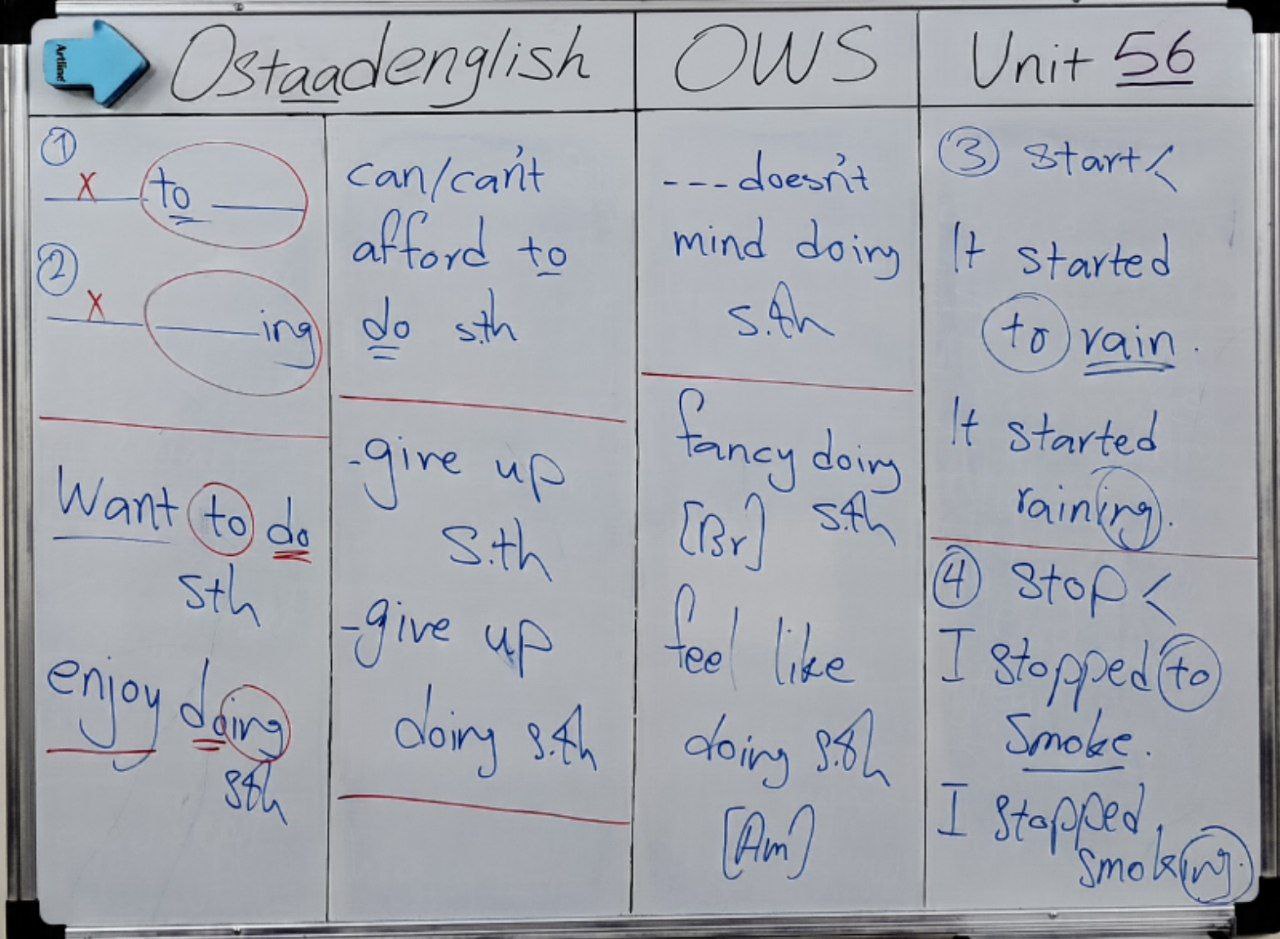 Artline
Ostaadenglish
OWS
Unit 56
①
x to
②
x ing
Want to do
sth
enjoy doing
sth
can/can't
afford to
do s.th
-give up
s.th
-give up
doing s.th
---doesn't
mind doing
s.th
fancy doing
[Br] s.th
feel like
doing s.th
[Am]
③ start<
It started
to rain.
It started
raining.
④ stop<
I stopped to
smoke.
I stopped
smoking.